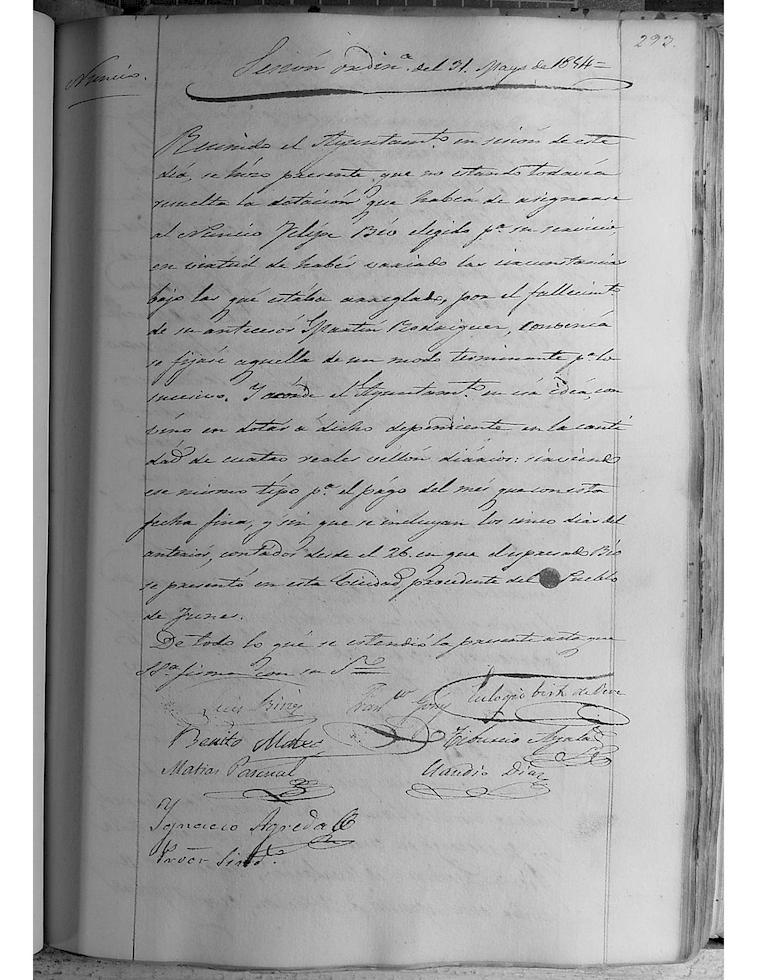 293.
Nuncio.
Sesión ordin.ª del 31. Mayo de 1844=
Reunido el Ayuntam.to en sesion de este
dia, se hizo presente que no estando todavia
resuelta la dotación que habia de asignarse
al Nuncio Felipe Bio elegido p.ª su servicio
en virtud de haber variado las circunstancias
bajo las que estaba arreglada, por el fallecim.to
de su antecesor Martin Rodriguez, convenia
se fijase aquella de un modo terminante p.ª lo
sucesivo. Y acorde el Ayuntam.to en esa idea, con
vino en dotar á dicho dependiente en la canti
dad de cuatro reales vellon diários: sirviendo
ese mismo tipo p.ª el págo del mes que con esta
fecha fina, y sin que se incluyan los cinco dias del
anterior, contados desde el 26. en que el espresado Bio
se presentó en esta Ciudad, procedente del Pueblo
de Funes.
De todo lo qué se estendió la presente acta que
SS.ª firma con su S.rio
Luis Fran.co Eulogio
Benito Tiburcio Ayala
Matias Pascual Claudio Diaz
Ygnacio Agreda
Procr Sind.º